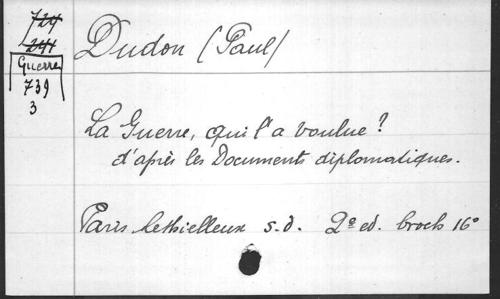 724
241
Guerre
739
3
Dudon (Paul)
La Guerre, qui l'a voulue?
d'après les Documents diplomatiques.
Paris Lethielleux s.d. 2e ed. broch 16°